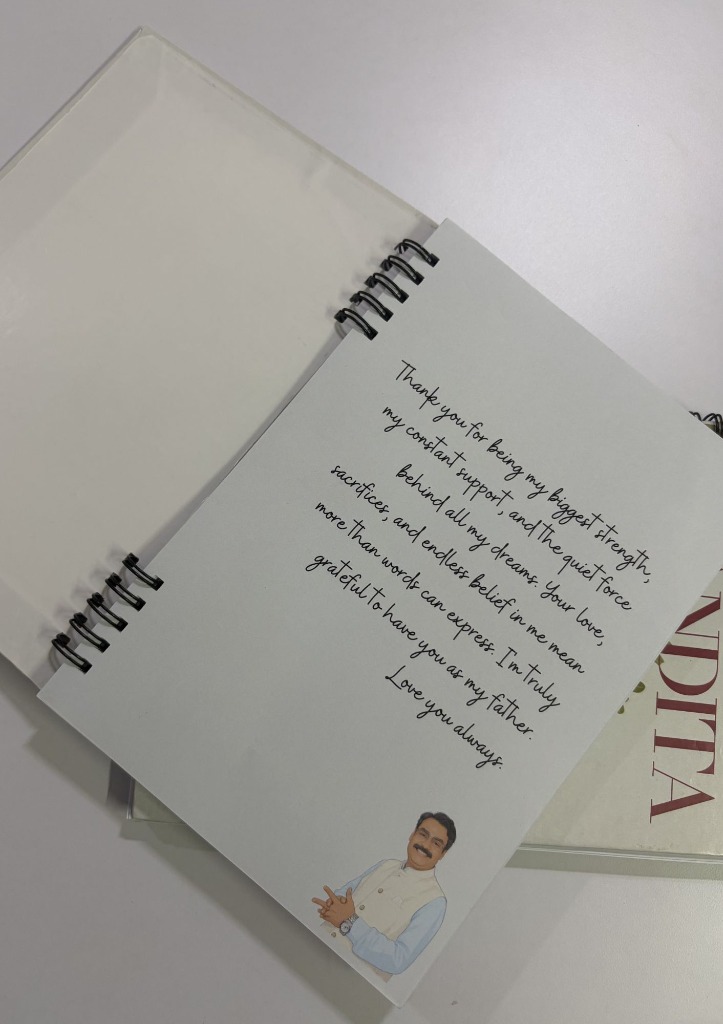 Thank you for being my biggest strength,
my constant support, and the quiet force
behind all my dreams. Your love,
sacrifices, and endless belief in me mean
more than words can express. I'm truly
grateful to have you as my father.
Love you always.
NDITA